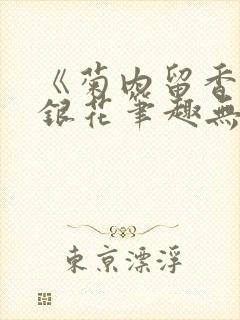 《菊内留香
銀花筆趣無
東京漂浮